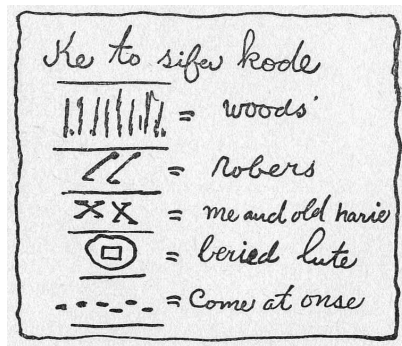 Ke to sifer kode
= woods
= robers
= me and old harie
= beried lute
= Come at onse